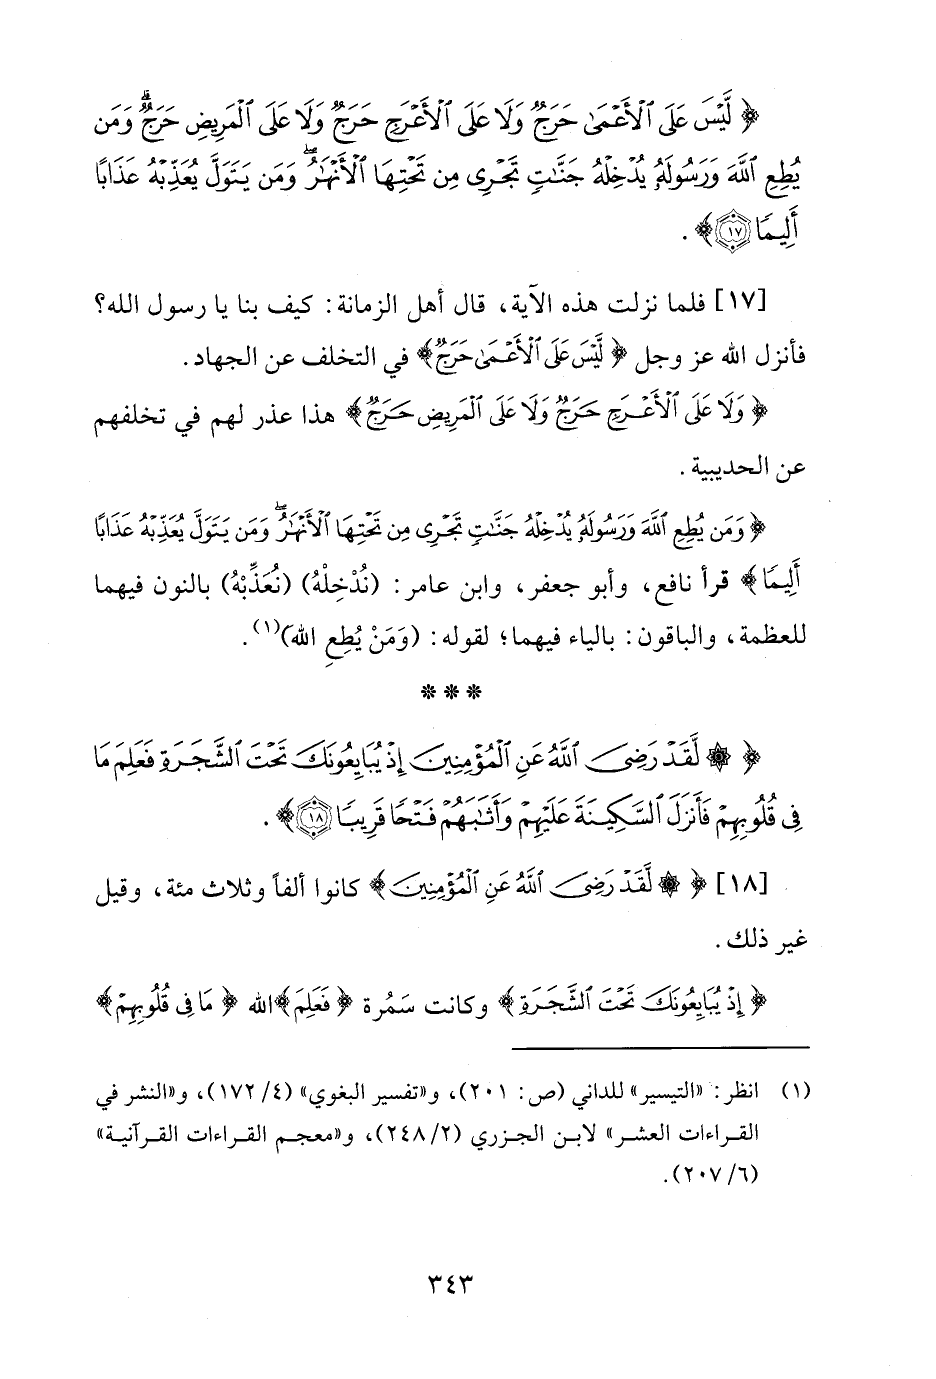 ﴿ لَّيْسَ عَلَى ٱلْأَعْمَىٰ حَرَجٌ وَلَا عَلَى ٱلْأَعْرَجِ حَرَجٌ وَلَا عَلَى ٱلْمَرِيضِ حَرَجٌ ۗ وَمَن
يُطِعِ ٱللَّهَ وَرَسُولَهُۥ يُدْخِلْهُ جَنَّٰتٍ تَجْرِى مِن تَحْتِهَا ٱلْأَنْهَٰرُ ۖ وَمَن يَتَوَلَّ يُعَذِّبْهُ عَذَابًا
أَلِيمًا ١٧﴾ .
[١٧] فلما نزلت هذه الآية، قال أهل الزمانة: كيف بنا يا رسول الله؟
فأنزل الله عز وجل ﴿ لَّيْسَ عَلَى ٱلْأَعْمَىٰ حَرَجٌ﴾ في التخلف عن الجهاد.
﴿ وَلَا عَلَى ٱلْأَعْرَجِ حَرَجٌ وَلَا عَلَى ٱلْمَرِيضِ حَرَجٌ﴾ هذا عذر لهم في تخلفهم
عن الحديبية .
﴿ وَمَن يُطِعِ ٱللَّهَ وَرَسُولَهُۥ يُدْخِلْهُ جَنَّٰتٍ تَجْرِى مِن تَحْتِهَا ٱلْأَنْهَٰرُ ۖ وَمَن يَتَوَلَّ يُعَذِّبْهُ عَذَابًا
أَلِيمًا﴾ قرأ نافع، وأبو جعفر، وابن عامر: (نُدْخِلْهُ) (نُعَذِّبْهُ) بالنون فيهما
للعظمة، والباقون: بالياء فيهما؛ لقوله: (وَمَنْ يُطِعِ اللهَ)(١).
* * *
﴿ ۞ لَّقَدْ رَضِىَ ٱللَّهُ عَنِ ٱلْمُؤْمِنِينَ إِذْ يُبَايِعُونَكَ تَحْتَ ٱلشَّجَرَةِ فَعَلِمَ مَا
فِى قُلُوبِهِمْ فَأَنزَلَ ٱلسَّكِينَةَ عَلَيْهِمْ وَأَثَٰبَهُمْ فَتْحًا قَرِيبًا ١٨﴾ .
[١٨] ﴿ ۞ لَّقَدْ رَضِىَ ٱللَّهُ عَنِ ٱلْمُؤْمِنِينَ﴾ كانوا ألفاً وثلاث مئة، وقيل
غير ذلك .
﴿ إِذْ يُبَايِعُونَكَ تَحْتَ ٱلشَّجَرَةِ﴾ وكانت سَمُرة ﴿ فَعَلِمَ﴾الله ﴿ مَا فِى قُلُوبِهِمْ﴾
(١) انظر: «التيسير» للداني (ص: ٢٠١)، و«تفسير البغوي» (٤/ ١٧٢)، و«النشر في
القراءات العشر» لابن الجزري (٢/ ٢٤٨)، و«معجم القراءات القرآنية»
(٦/ ٢٠٧).
٣٤٣